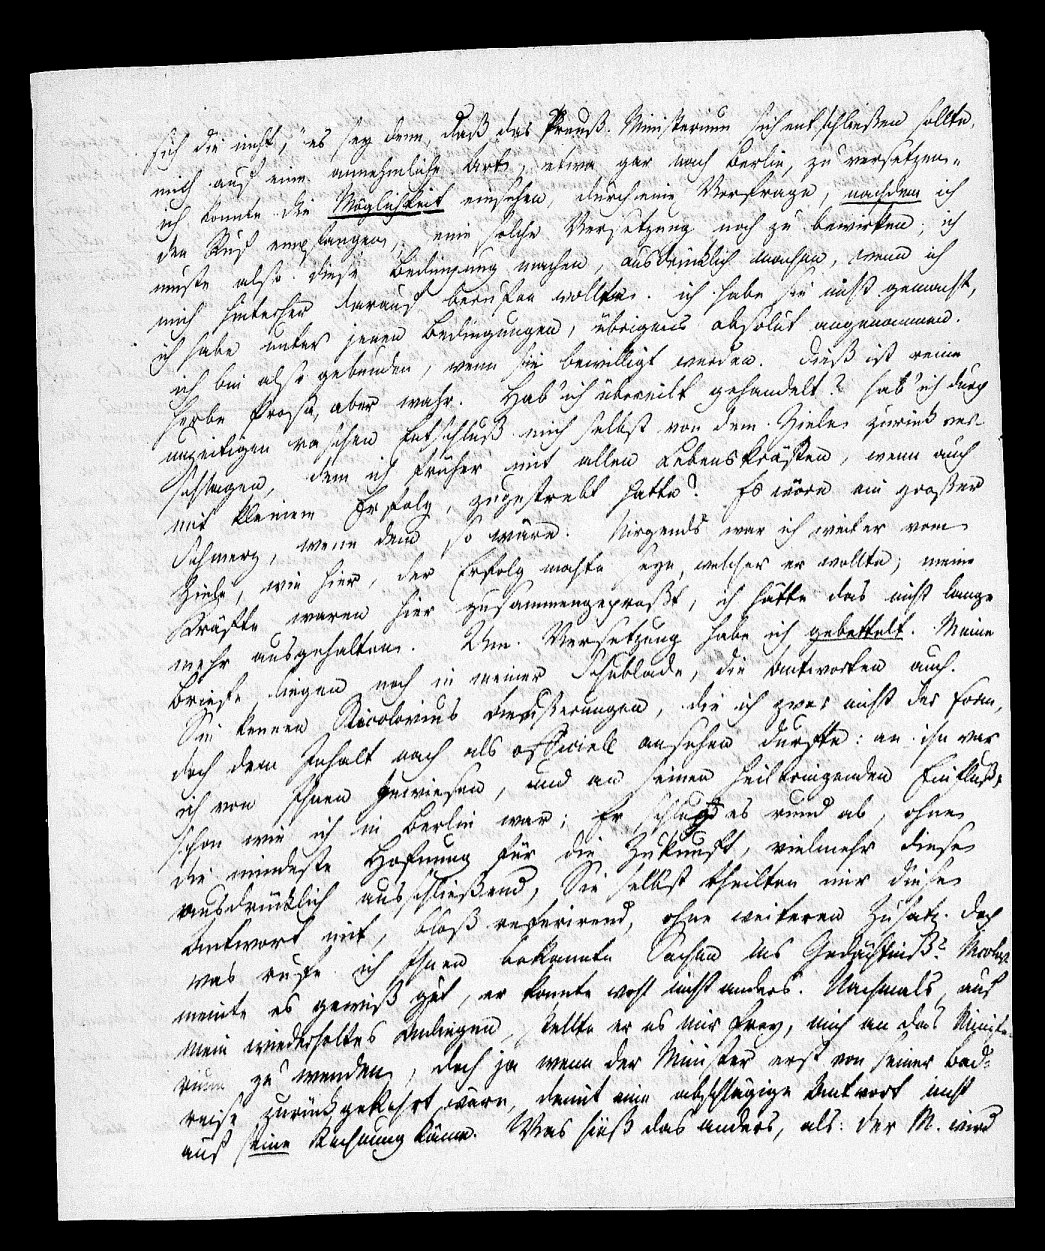 sich die nicht, "es sey denn, daß das Preuß. Ministerium sich entschließen sollte,
mich auf eine annehmliche Art, etwa gar nach Berlin, zu versetzen."
ich konnte die Möglichkeit einsehen, durch eine Vorfrage, nachdem ich
den Ruf empfangen, eine solche Versetzung noch zu bewirken, ich
mußte also diese Bedingung machen, ausdrücklich machen, wenn ich
mich hinterher darauf berufen wollte. ich habe sie nicht gemacht,
ich habe unter jenen Bedingungen, übrigens absolut angenommen.
ich bin also gebunden, wenn sie bewilligt werden. Dieß ist reine
herbe Prosa, aber wahr. Hab' ich übereilt gehandelt? hab' ich durch
unzeitigen raschen Entschluß mich selbst von dem Ziele zurück ver-
schlagen, dem ich früher mit allen Lebenskräften, wenn auch
mit kleinem Erfolg zugestrebt hatte? Es wäre ein großer
Schmerz, wenn dem so wäre. Nirgends war ich weiter vom
Ziele, wie hier, der Erfolg mochte seyn, welcher er wollte; meine
Kräfte waren hier zusammengepreßt, ich hätte das nicht lange
mehr ausgehalten. Um Versetzung habe ich gebettelt. Meine
Briefe liegen noch in meiner Schublade, die Antworten auch.
Sie kennen Nicolovius Aeußerungen, die ich zwar nicht der Form,
doch dem Inhalt nach als officiell ansehen durfte: an ihn war
ich von Ihnen gewiesen, und an seinen heilbringenden Einfluß,
schon wie ich in Berlin war; Er schlug es rund ab, ohne
die mindeste Hofnung für die Zukunft, vielmehr diese
ausdrücklich ausschließend, Sie selbst theilten mir diese
Antwort mit, bloß referirend, ohne weiteren Zusatz. Doch
was rufe ich Ihnen bekannte Sachen ins Gedächtniß? Nicolov.
meinte es gewiß gut, er konnte wohl nicht anders. Nachmals, auf
mein wiederholtes Anliegen, stellte er es mir frey, mich an das Ministe-
rium zu wenden, doch ja wenn der Minister erst von seiner Bad-
reise zurückgekehrt wäre, damit eine abschlägige Antwort nicht
auf seine Rechnung käme. Was hieß das anders, als: der M. wird